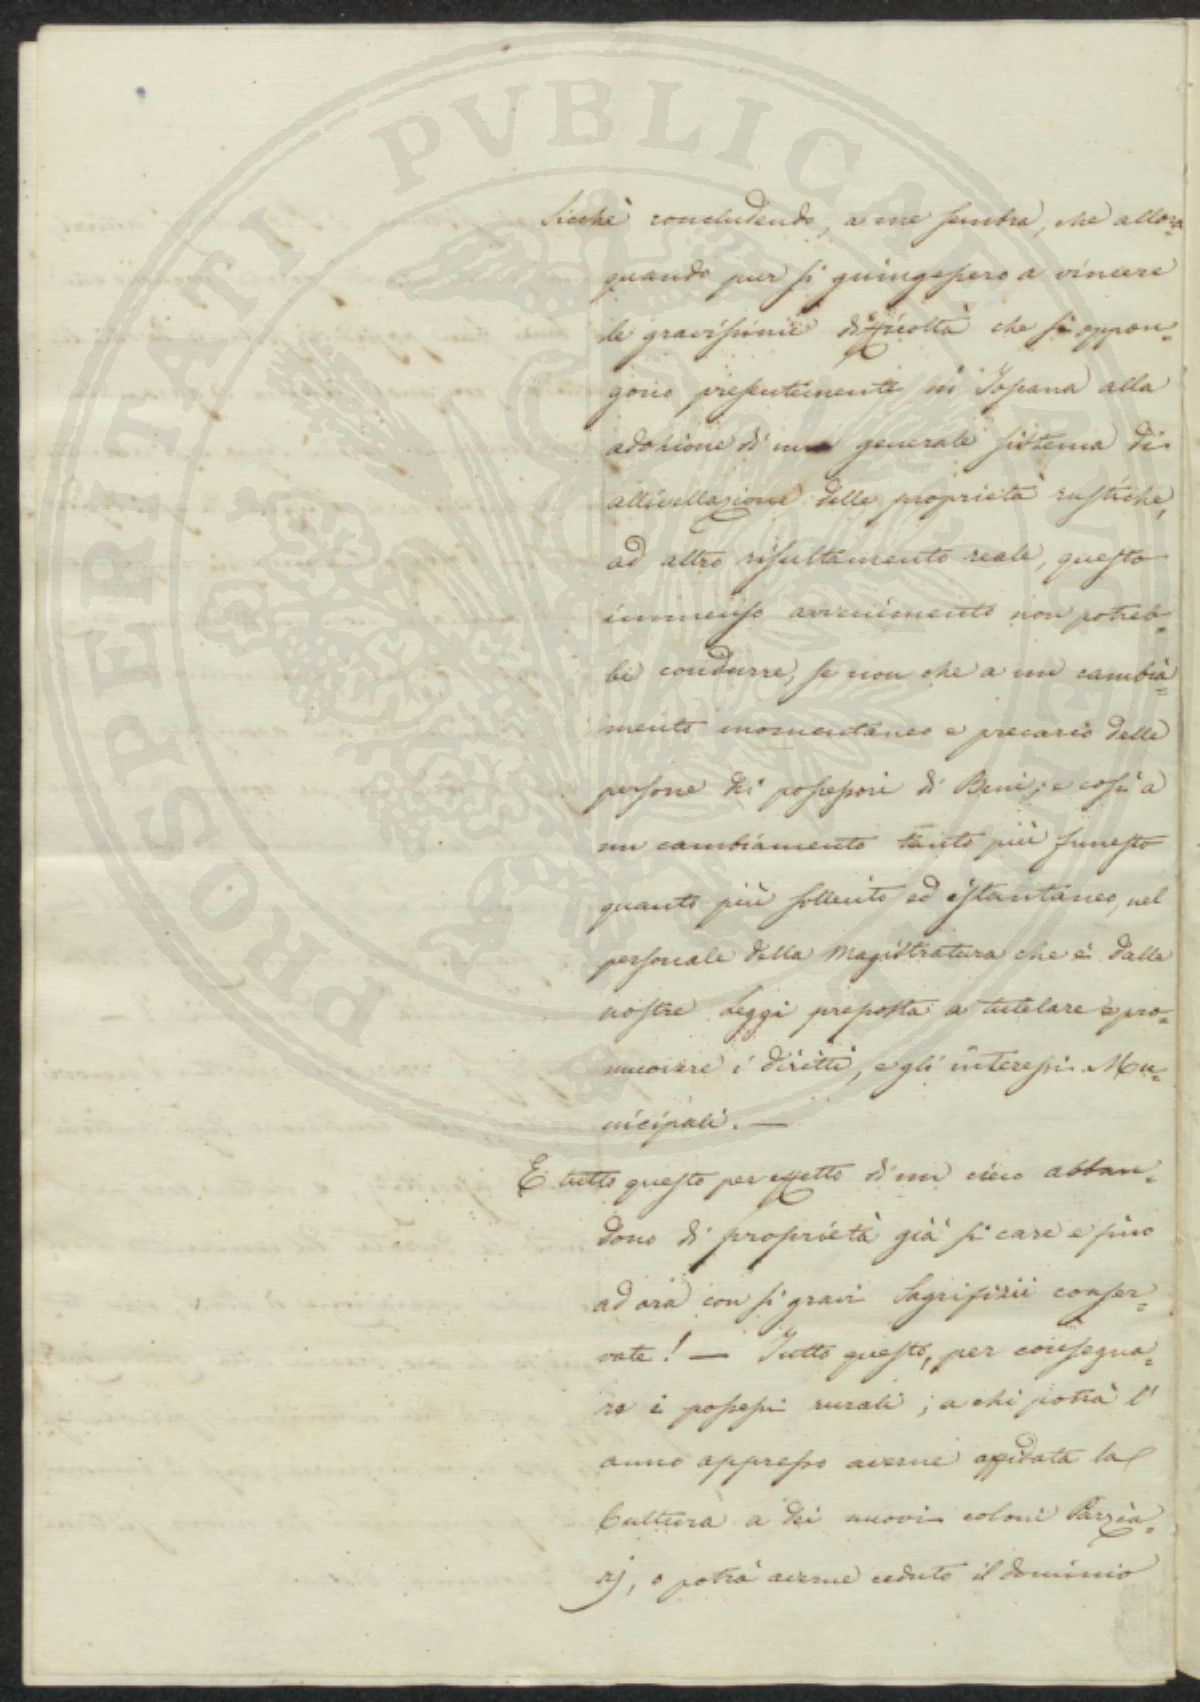 PROSPERITATI PVBLICAE
Sicchè concludendo, a me sembra, che allora
quando pur si giungessero a vincere
le gravissime difficoltà che si oppon=
gono presentemente in Toscana alla
adozione di un generale sistema di
allivellazione delle proprietà rustiche,
ad altro risultamento reale, questo
immenso avvenimento non potreb=
be condurre, se non che a un cambia=
mento momentaneo e precario delle
persone dei possessori di Beni; e così a
un cambiamento tanto più funesto
quanto più sollecito ed istantaneo, nel
personale della Magistratura che è dalle
nostre Leggi preposta a tutelare e pro=
muovere i diritti, e gli interessi Mu=
nicipali. —
E tutto questo per effetto di un cieco abban=
dono di proprietà già sì care e sino
ad ora con sì gravi Sagrifizii conser=
vate! — Tutto questo, per consegna=
re i possessi rurali; a chi potrà l'
anno appresso averne affidata la
Cultura a dei nuovi coloni Parzia=
rj, o potrà averne ceduto il dominio